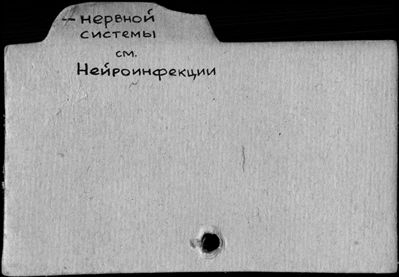 — нервной
системы
см.
Нейроинфекции